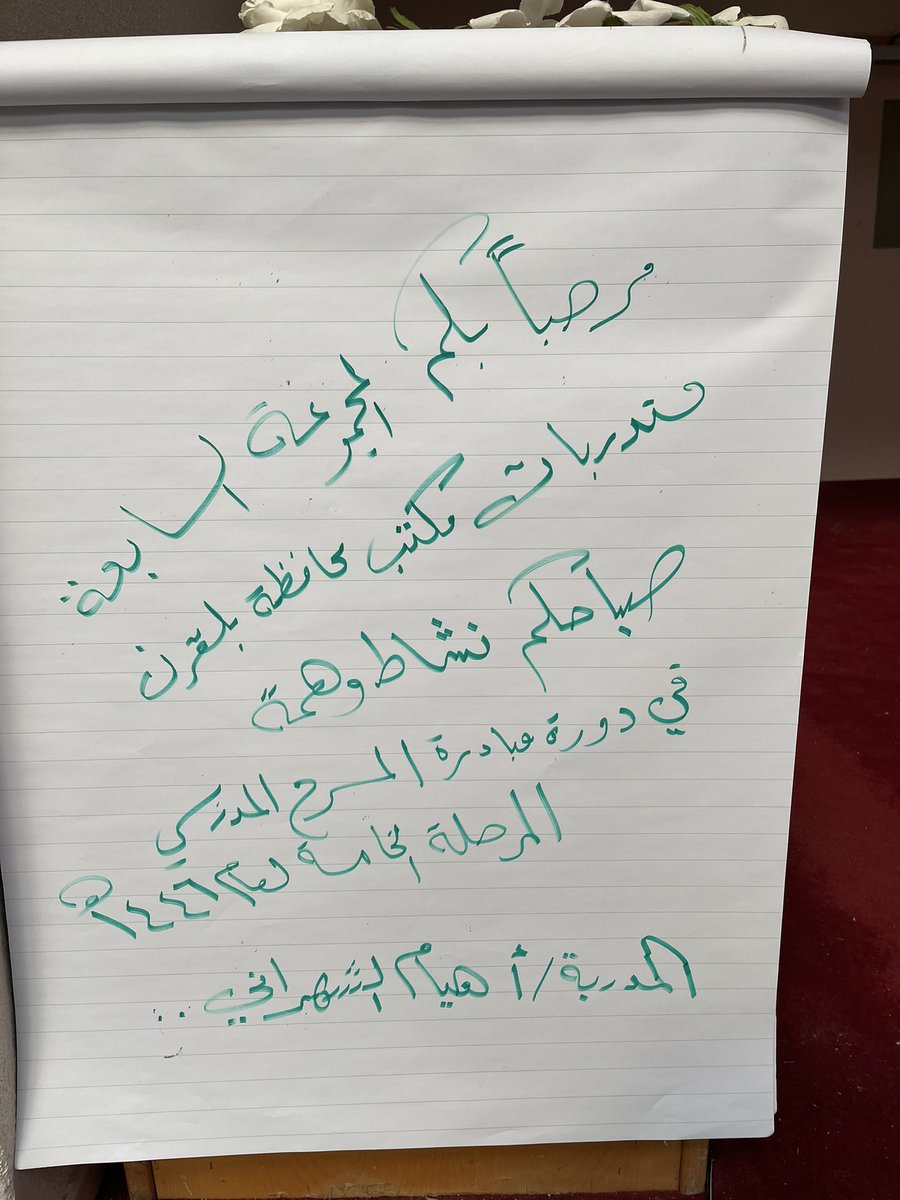 مرحباً بكم المجموعة السابعة
متدربات مكتب محافظة بلقرن
صباحكم نشاط وهمة
في دورة مبادرة المسرح المدرسي
المرحلة الخامسة لعام ١٤٤٦هـ
المدربة / أ هيام الشهراني ..